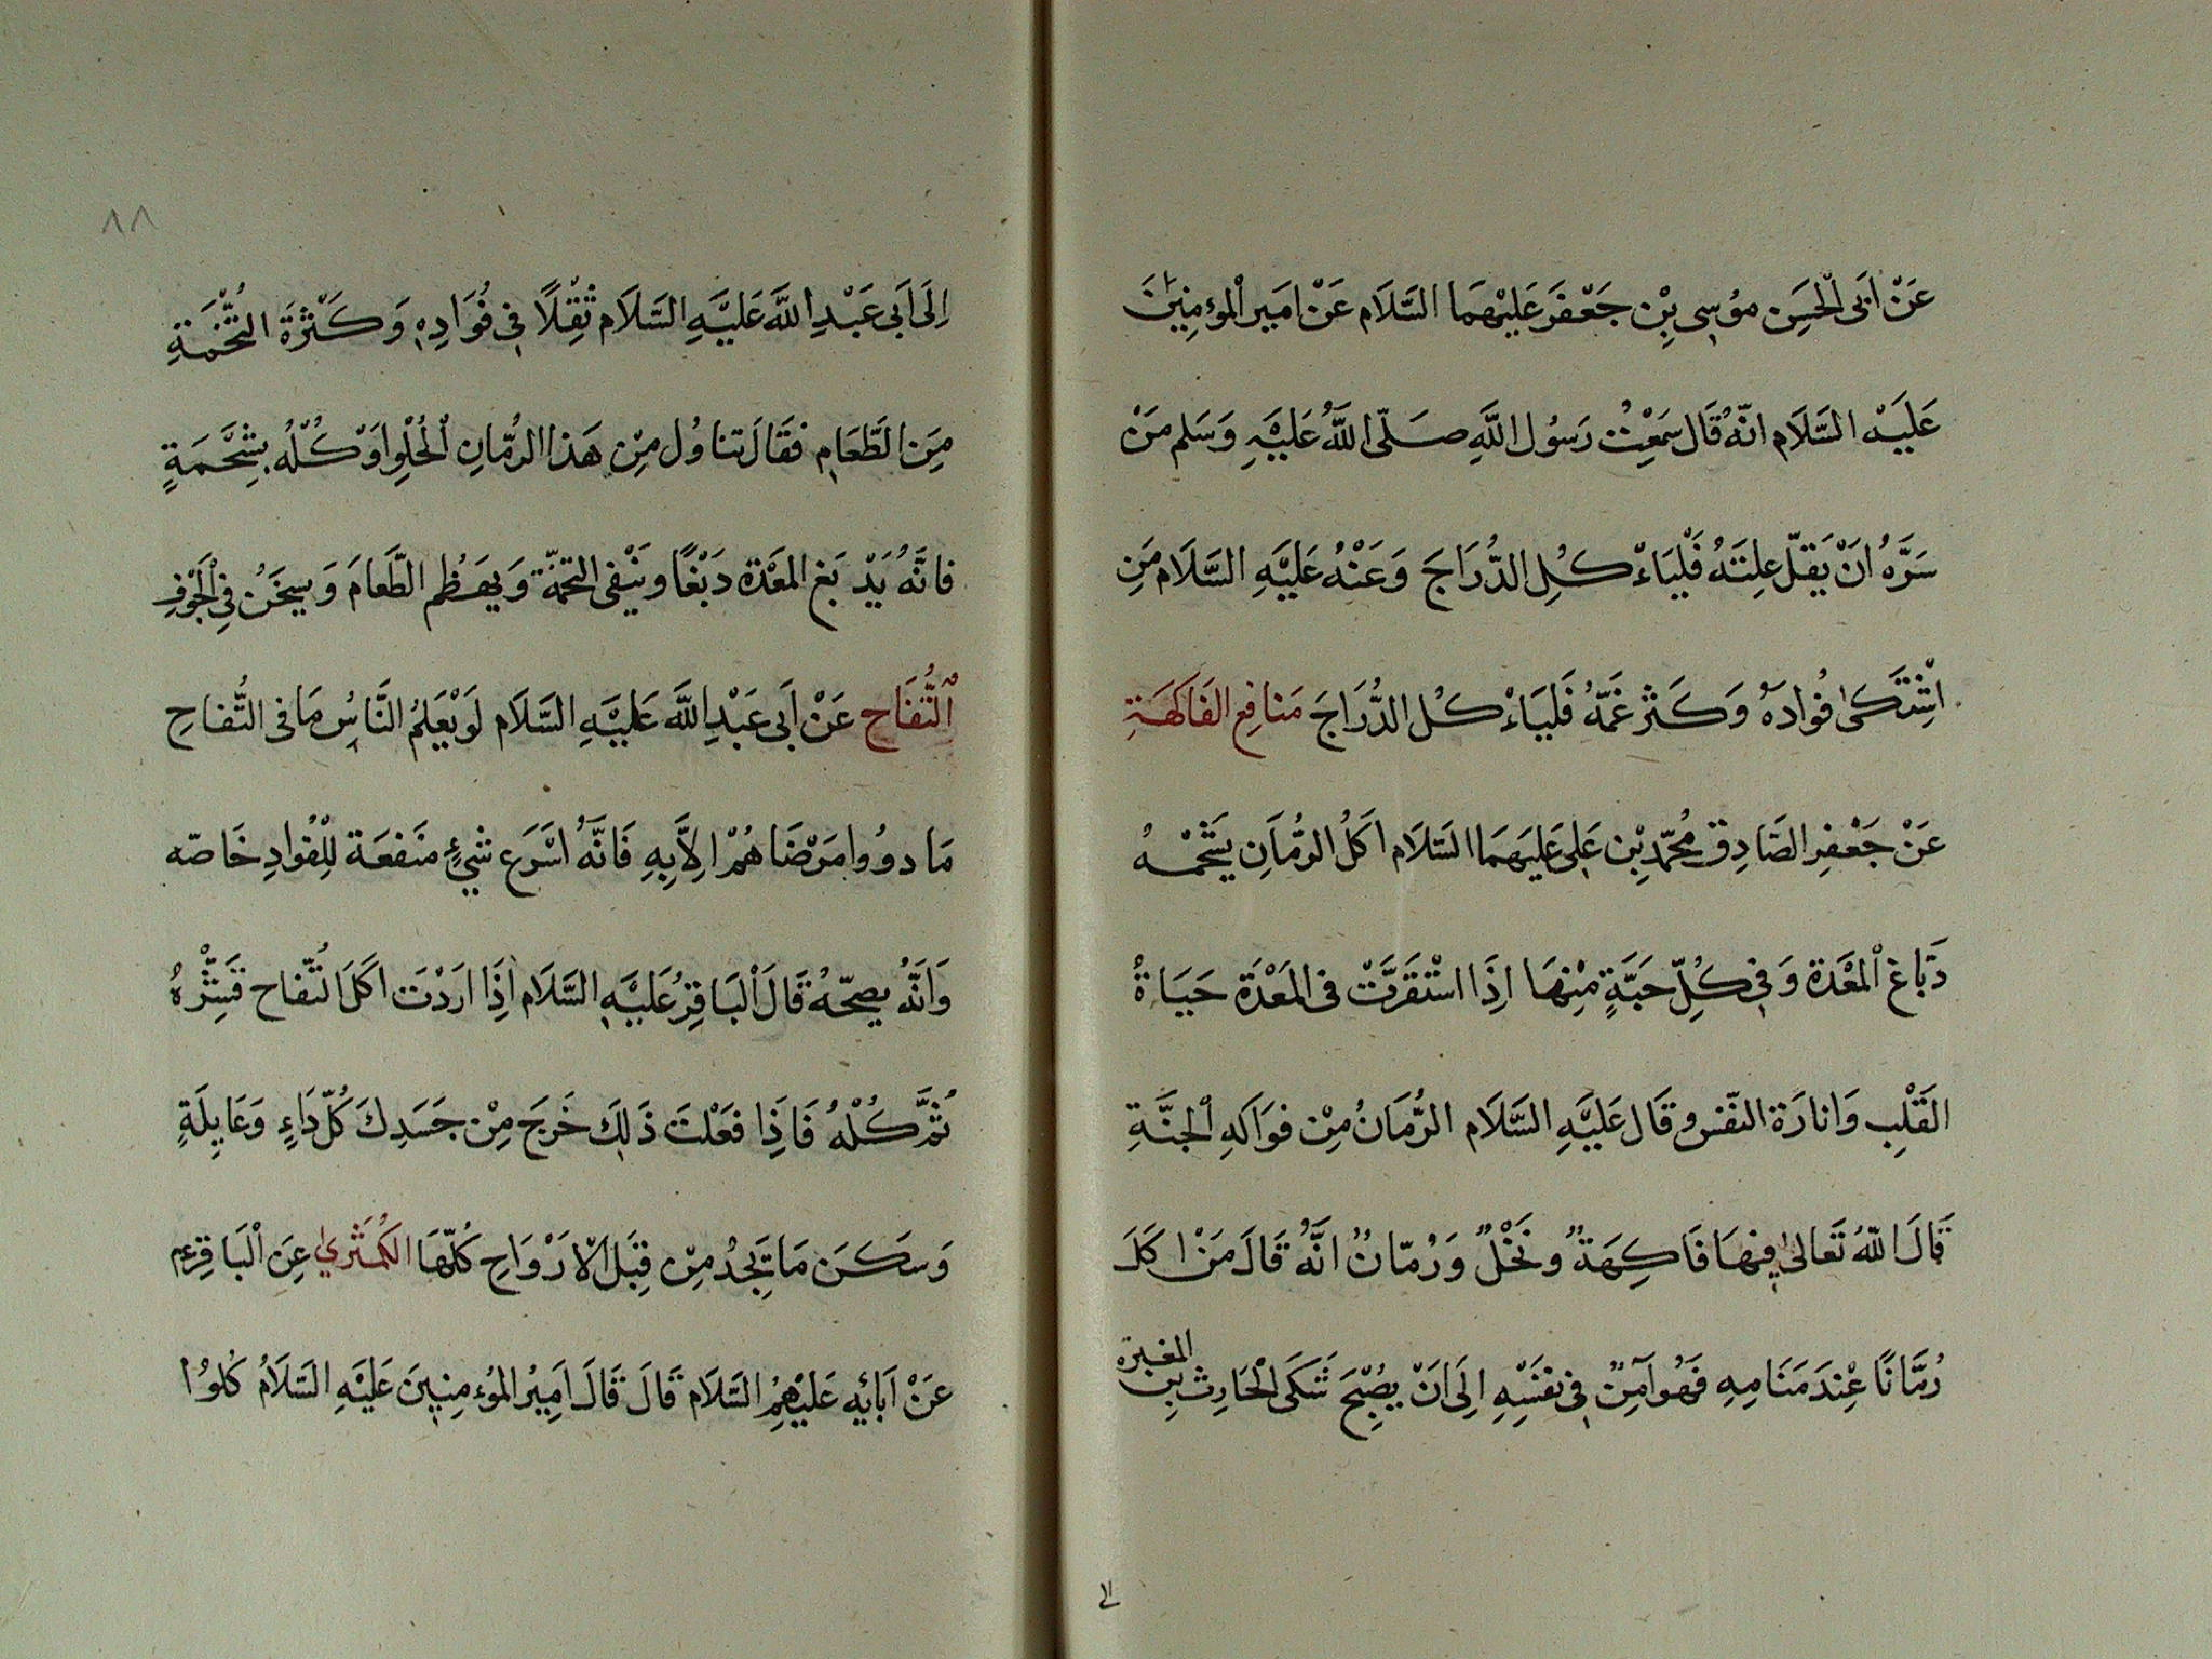 عَنْ اَبى الْحَسَنِ مُوسى بْنِ جَعْفَر عَلَيْهِمَا السَّلَام عَنْ اَمير الْمؤمنِينَ
عَلَيْه السَّلَام انَّهُ قَال سَمِعْتُ رَسُول اللَّهِ صَلّى اللَّهُ عَلَيْهِ وَسَلم مَنْ
سَرَّهُ اَنْ يَقلّ علِتَهُ فَلْيَاءْ كُلِ الدُّرَاجَ وَعَنْهُ عَلَيْهِ السَّلَام مَنِ
اشْتَكىٰ فُوادَهُ وَكَثر غَمّهُ فَليَاءْ كُل الدُّرَاجَ مَنافِع الفَاكهَةِ
عَنْ جَعْفِر الصَّادِق مُحمّدِ بْن عَلى عَليَهمَا السَّلَام اَكَلُ الرُّمَانِ بشَحْمهُ
دَبّاغ الْمعْدَة وَفى كُلّ حَبَّةٍ مْنِهَا اِذَا اسْتقَرَّتْ فى الْمَعْدَة حَيَاةُ
القَلْبِ وَانارَة النَّفس وقَال عَلَيْهِ السَّلَام الرُّمَانُ مِنْ فوَاكهِ الْجنَّةِ
قَالَ اللّهُ تَعَالىٰ فِيهَا فَاكِهَةٌ ونَخْلٌ وَرُمّانٌ انَّهُ قَالَ مَنْ اكَلَ
رُمَّانًا عِنْدَ مَنَامِهِ فَهُو اَمِنٌ فى نفسِهِ اِلَى اَنْ يصُبْحَ شَكَى الْحَارِث بْنِ المغيرة
الى
٨٨
اِلَى اَبى عَبْدِ اللَّه عَلَيْهِ السَّلَام ثقْلًا فى فُوَادِهِ وَكَثْرَة التُّخْمَةِ
مِنَ الطَّعَامِ فقَالَ تناوُل مِنْ هَذا الرُّمّانِ الْحُلْوِ اوْ كُلْهُ بشِحْمَةٍ
فانَّهُ يَدْبَغ المعْدَة دَبْغًا وينْفى التخمَة وَيهَضُم الطَّعامَ وَيسخَنُ فى الْجَوْفِ
اَلتُّفَاح عَنْ اَبى عَبْدِ اللَّه عَليْهِ السَّلَام لَوْ يعْلَمُ النَّاسُ مَا فى التُّفاحِ
مَا دوُوا مَرْضَاهُمْ اِلاَّ بِهِ فَانَّهُ اسْرَع شىْءٍ منَفعَة لِلْفُوادِ خَاصّه
وَانَّهُ يصحّهُ قَالَ الْبَاقِرُ عَلَيْهِ السَّلَام اِذَا اَرَدْتَ اَكَلَ التُّفّاح فَشِّرْهُ
ثُمَّ كُلْهُ فَاذَا فعَلْتَ ذَلِكَ خَرجَ مِنْ جَسَدِكَ كُلّ دَاءٍ وَغَايلَةٍ
وَسَكَنَ مَا تَجِدُ مِنْ قِبَلِ الْارَوَاحِ كُلّهَا الكُمّثرىٰ عِنَ الْبَاقِرِ ع م
عَنْ اَبائهِ عَلَيْهِمُ السَّلَام قَالَ قَالَ اَمِيرُ المُؤمنِينَ عَلَيْهِ السَّلَامُ كُلوُا